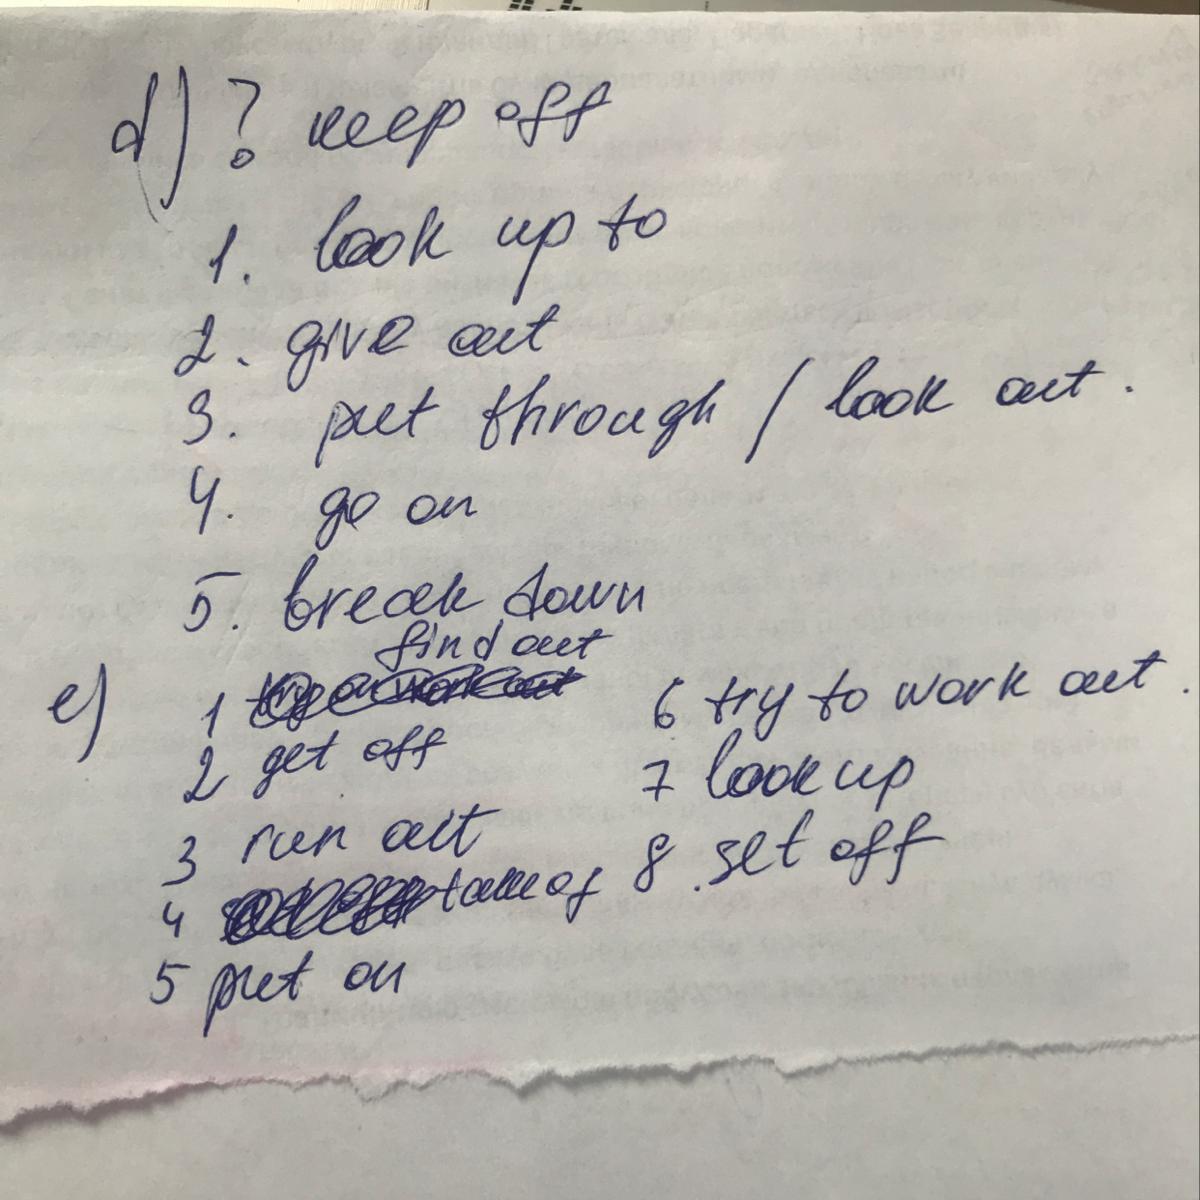 d) ? keep off
1. look up to
2. give out
3. put through / look out.
4. go on
5. break down
find out
e) 1
2 get off
3 run out
4 take of
5 put on
6 try to work out.
7 look up
8 set off